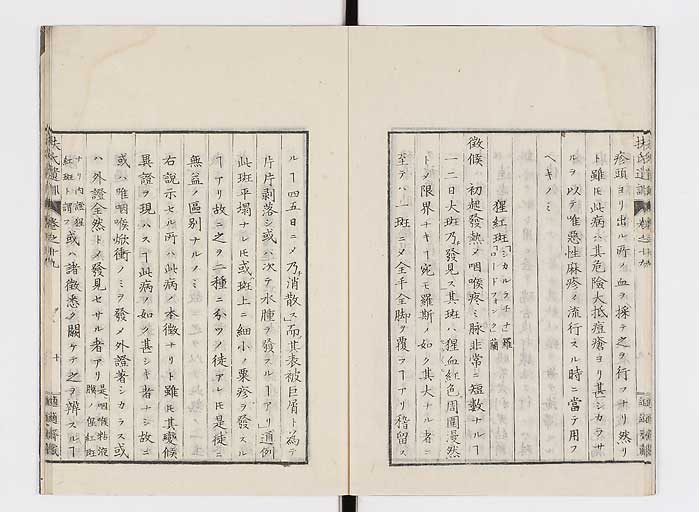 疹頭ヨリ出ル所ノ血ヲ採テ之ヲ行フナリ然リ
ト雖𪜈此病ハ其危險大抵痘瘡ヨリ甚シカラサ
ルヲ以テ唯惡性麻疹ノ流行スル時ニ當テ用フ
ヘキノミ
猩紅斑
徵候 初起發熱ノ咽喉疼ミ脉非常ニ短數ナルヿ
一二日大斑乃チ發見ス其斑ハ猩血紅色周圍漫然
トノ限界ナキヿ宛モ羅斯ノ如ク其大ナル者ニ
至テハ一斑ニメ全手全脚ヲ覆フヿアリ稽留ス
ルヿ四五日ニメ乃チ消散ス而其表被巨屑ト為テ
片片剥落シ或ハ次テ水腫ヲ發スルヿアリ通例
此斑平塌ナレ𪜈或ハ斑上ニ細小ノ粟疹ヲ發スル
ヿアリ故ニ之ヲ二種ニ分ツノ徒アレ𪜈是徒ニ
無益ノ區別ナルノミ
右說示セル所ハ此病ノ本徵ナリト雖𪜈其變候
異證ヲ現ハスヿ此病ノ如ク甚シキ者ナシ故ニ
或ハ唯咽喉焮衝ノミヲ發メ外證著シカラス或
ハ外證全然トメ發見セサル者アリ是咽喉粘液膜ノ猩紅斑
ナリ内證猩紅斑ト謂フ或ハ諸徵悉ク闕ケテ之ヲ辨スルヿ
扶氏遺訓 卷之十九